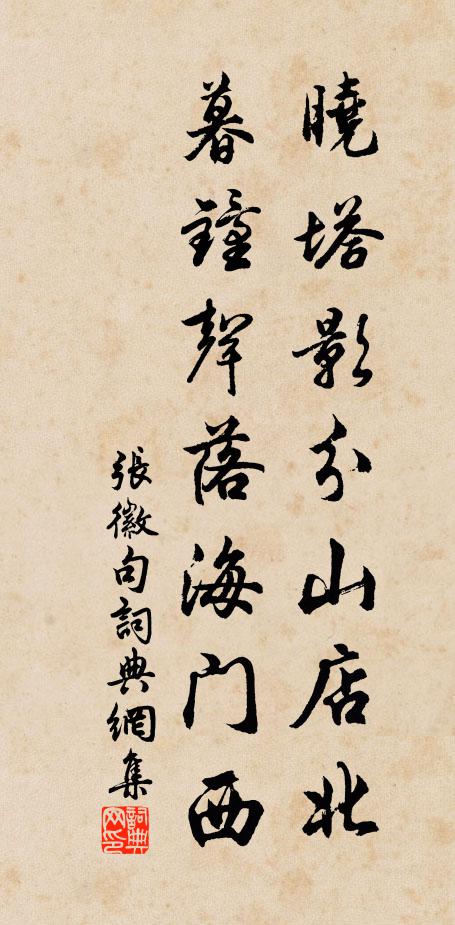 曉塔影分山店北
暮鐘聲落海門西
張徽句詞典網集
詞典網印